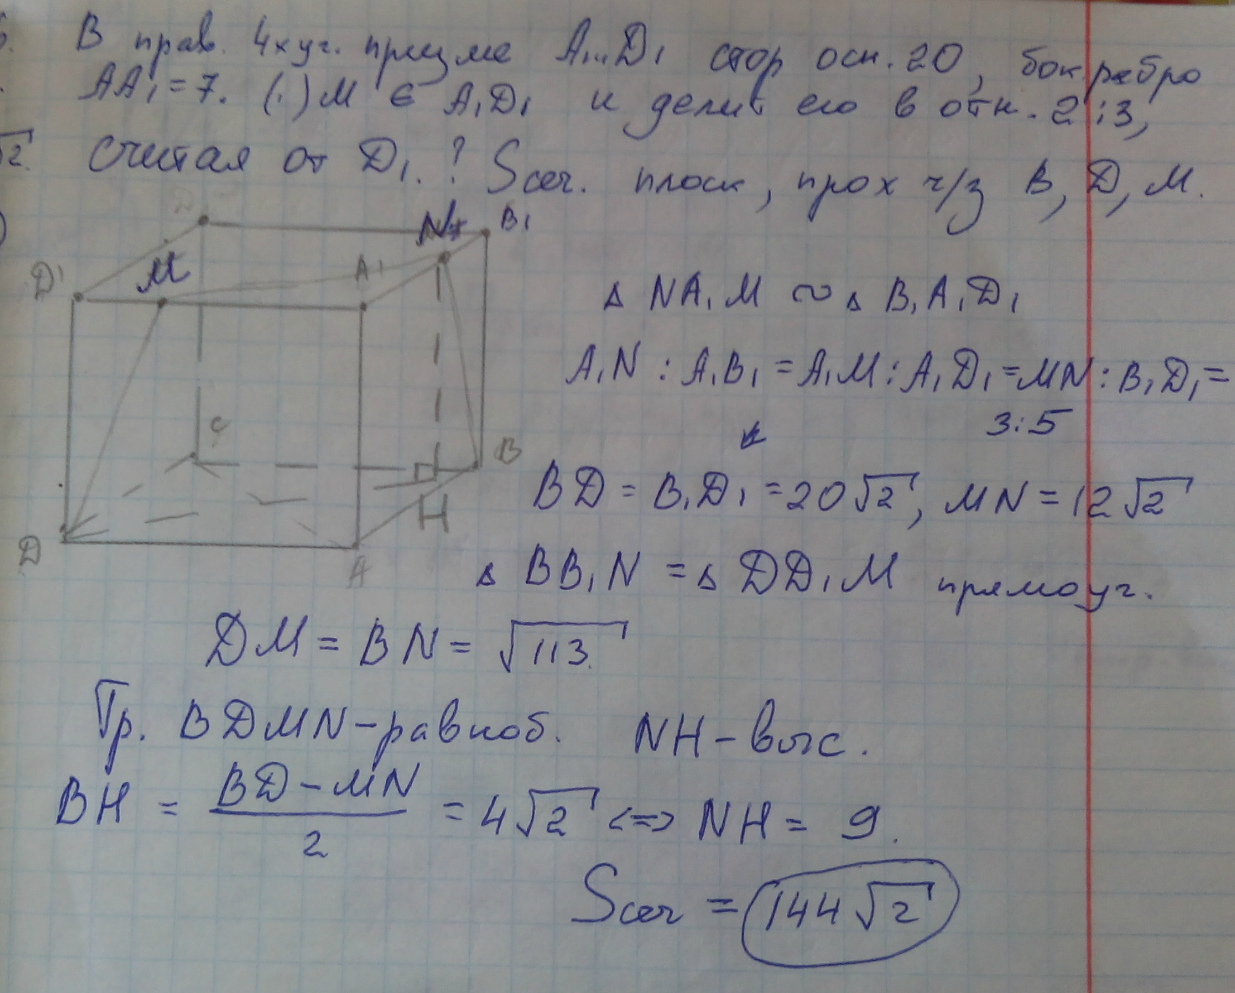 В прав. 4хуг. призме A...D₁ стор осн. 20, бок ребро
AA₁ = 7. (·) M ∈ A₁D₁ и делит его в отн. 2:3,
считая от D₁. ? Sсеч. плоск, прох ч/з B, D, M.
N B₁
D₁ M A₁
Δ NA₁M ∾ Δ B₁A₁D₁
A₁N : A₁B₁ = A₁M : A₁D₁ = MN : B₁D₁ =
3:5
C B
BD = B₁D₁ = 20√2, MN = 12√2
H
D A
Δ BB₁N = Δ DD₁M прямоуг.
DM = BN = √113.
Тр. BDMN - равноб. NH - выс.
BH = (BD - MN)/2 = 4√2 <=> NH = 9.
Sсеч = 144√2